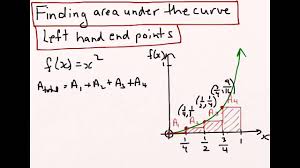 Finding area under the curve
Left hand end points
f(x) = x²
A total = A₁ + A₂ + A₃ + A₄
f(x)
(3/4, 9/16)
(1/2, 1/4)
A₁ A₂ A₃ A₄
1/4 1/2 3/4 1 x